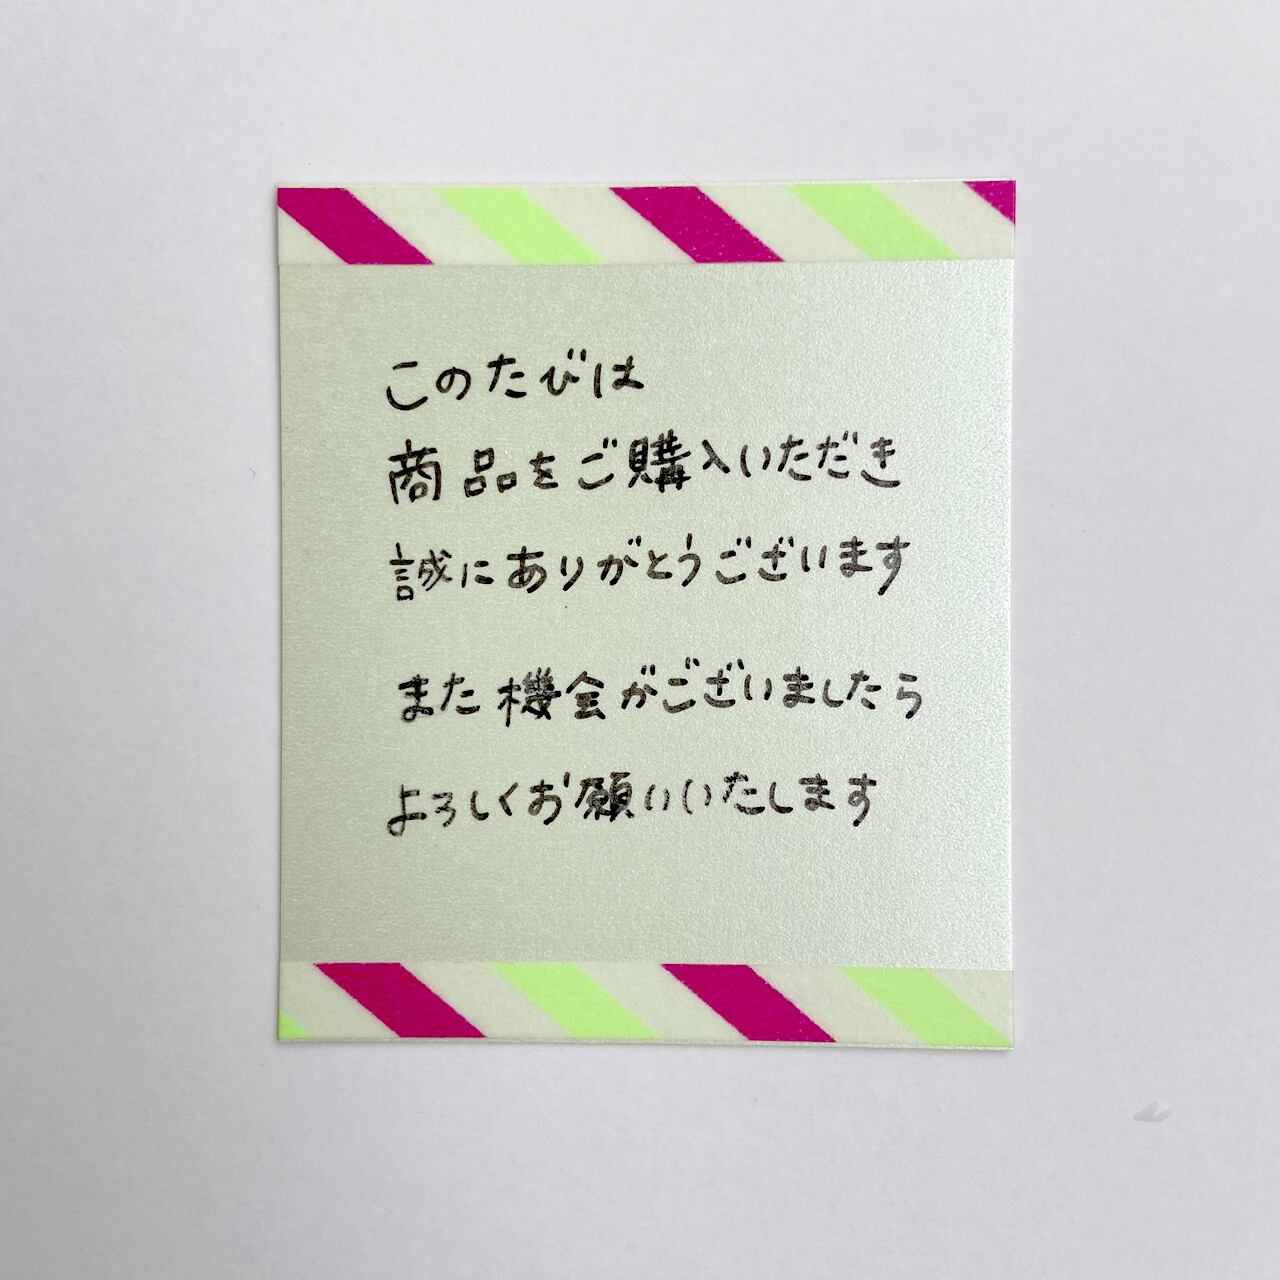 このたびは
商品をご購入いただき
誠にありがとうございます
また機会がございましたら
よろしくお願いいたします